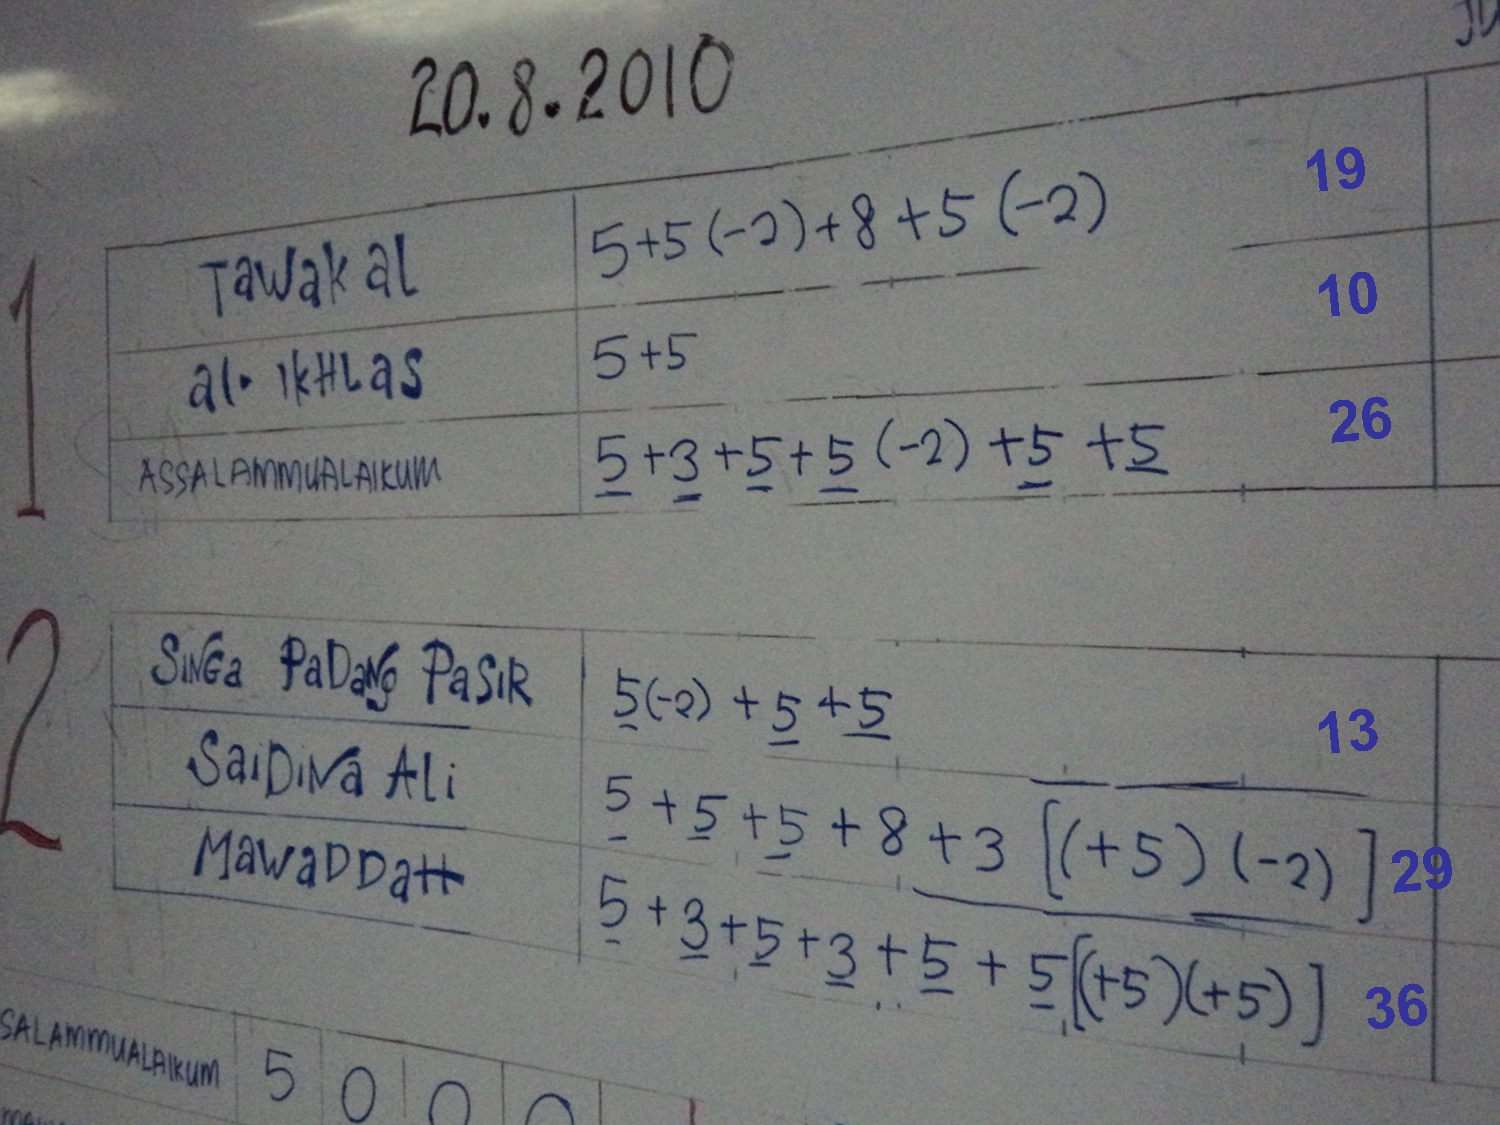 JD
20.8.2010
1
TAWAKAL 5+5(-2)+8+5(-2) 19
Al. IKHLAS 5+5 10
ASSALAMMUALAIKUM 5+3+5+5(-2)+5+5 26
2
SINGA PADANG PASIR 5(-2)+5+5 13
SAIDINA ALI 5+5+5+8+3[(+5)(-2)] 29
MAWADDAH 5+3+5+3+5+5[(+5)(+5)] 36
SALAMMUALAIKUM 5 0 0 0